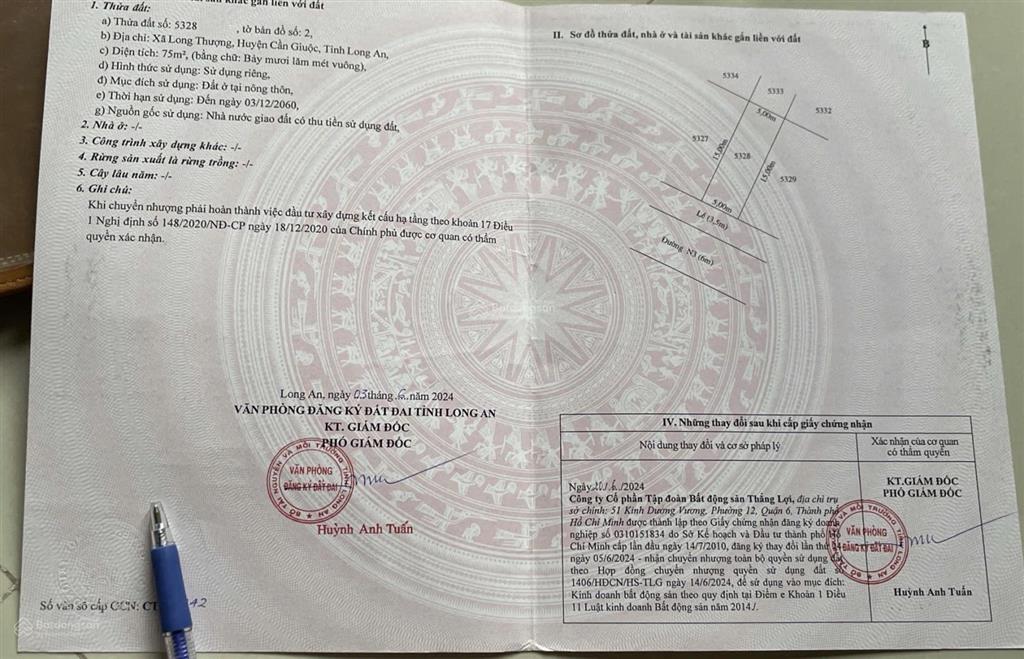 khác gắn liền với đất
1. Thửa đất:
a) Thửa đất số: 5328 , tờ bản đồ số: 2,
b) Địa chỉ: Xã Long Thượng, Huyện Cần Giuộc, Tỉnh Long An,
c) Diện tích: 75m², (bằng chữ: Bảy mươi lăm mét vuông),
d) Hình thức sử dụng: Sử dụng riêng,
đ) Mục đích sử dụng: Đất ở tại nông thôn,
e) Thời hạn sử dụng: Đến ngày 03/12/2060,
g) Nguồn gốc sử dụng: Nhà nước giao đất có thu tiền sử dụng đất,
2. Nhà ở: -/-
3. Công trình xây dựng khác: -/-
4. Rừng sản xuất là rừng trồng: -/-
5. Cây lâu năm: -/-
6. Ghi chú:
Khi chuyển nhượng phải hoàn thành việc đầu tư xây dựng kết cấu hạ tầng theo khoản 17 Điều
1 Nghị định số 148/2020/NĐ-CP ngày 18/12/2020 của Chính phủ được cơ quan có thẩm
quyền xác nhận.
Long An, ngày 03 tháng 6 năm 2024
VĂN PHÒNG ĐĂNG KÝ ĐẤT ĐAI TỈNH LONG AN
KT. GIÁM ĐỐC
PHÓ GIÁM ĐỐC
VĂN PHÒNG
ĐĂNG KÝ ĐẤT ĐAI
Huỳnh Anh Tuấn
Số vào sổ cấp GCN: CT 42
Batdongsan
II. Sơ đồ thửa đất, nhà ở và tài sản khác gắn liền với đất
B
5334
5333
5332
5,00m
5327
15,00m
5328
15,00m
5329
5,00m
Lề (3,5m)
Đường N3 (6m)
Batdongsan
IV. Những thay đổi sau khi cấp giấy chứng nhận
Nội dung thay đổi và cơ sở pháp lý
Xác nhận của cơ quan
có thẩm quyền
Ngày 20/6/2024
Công ty Cổ phần Tập đoàn Bất động sản Thắng Lợi, địa chỉ trụ
sở chính: 51 Kinh Dương Vương, Phường 12, Quận 6, Thành phố
Hồ Chí Minh được thành lập theo Giấy chứng nhận đăng ký doanh
nghiệp số 0310151834 do Sở Kế hoạch và Đầu tư thành phố Hồ
Chí Minh cấp lần đầu ngày 14/7/2010, đăng ký thay đổi lần thứ
ngày 05/6/2024 - nhận chuyển nhượng toàn bộ quyền sử dụng đất
theo Hợp đồng chuyển nhượng quyền sử dụng đất số
1406/HĐCN/HS-TLG ngày 14/6/2024, để sử dụng vào mục đích:
Kinh doanh bất động sản theo quy định tại Điểm e Khoản 1 Điều
11 Luật kinh doanh Bất động sản năm 2014./.
KT.GIÁM ĐỐC
PHÓ GIÁM ĐỐC
VĂN PHÒNG
ĐĂNG KÝ ĐẤT ĐAI
Huỳnh Anh Tuấn